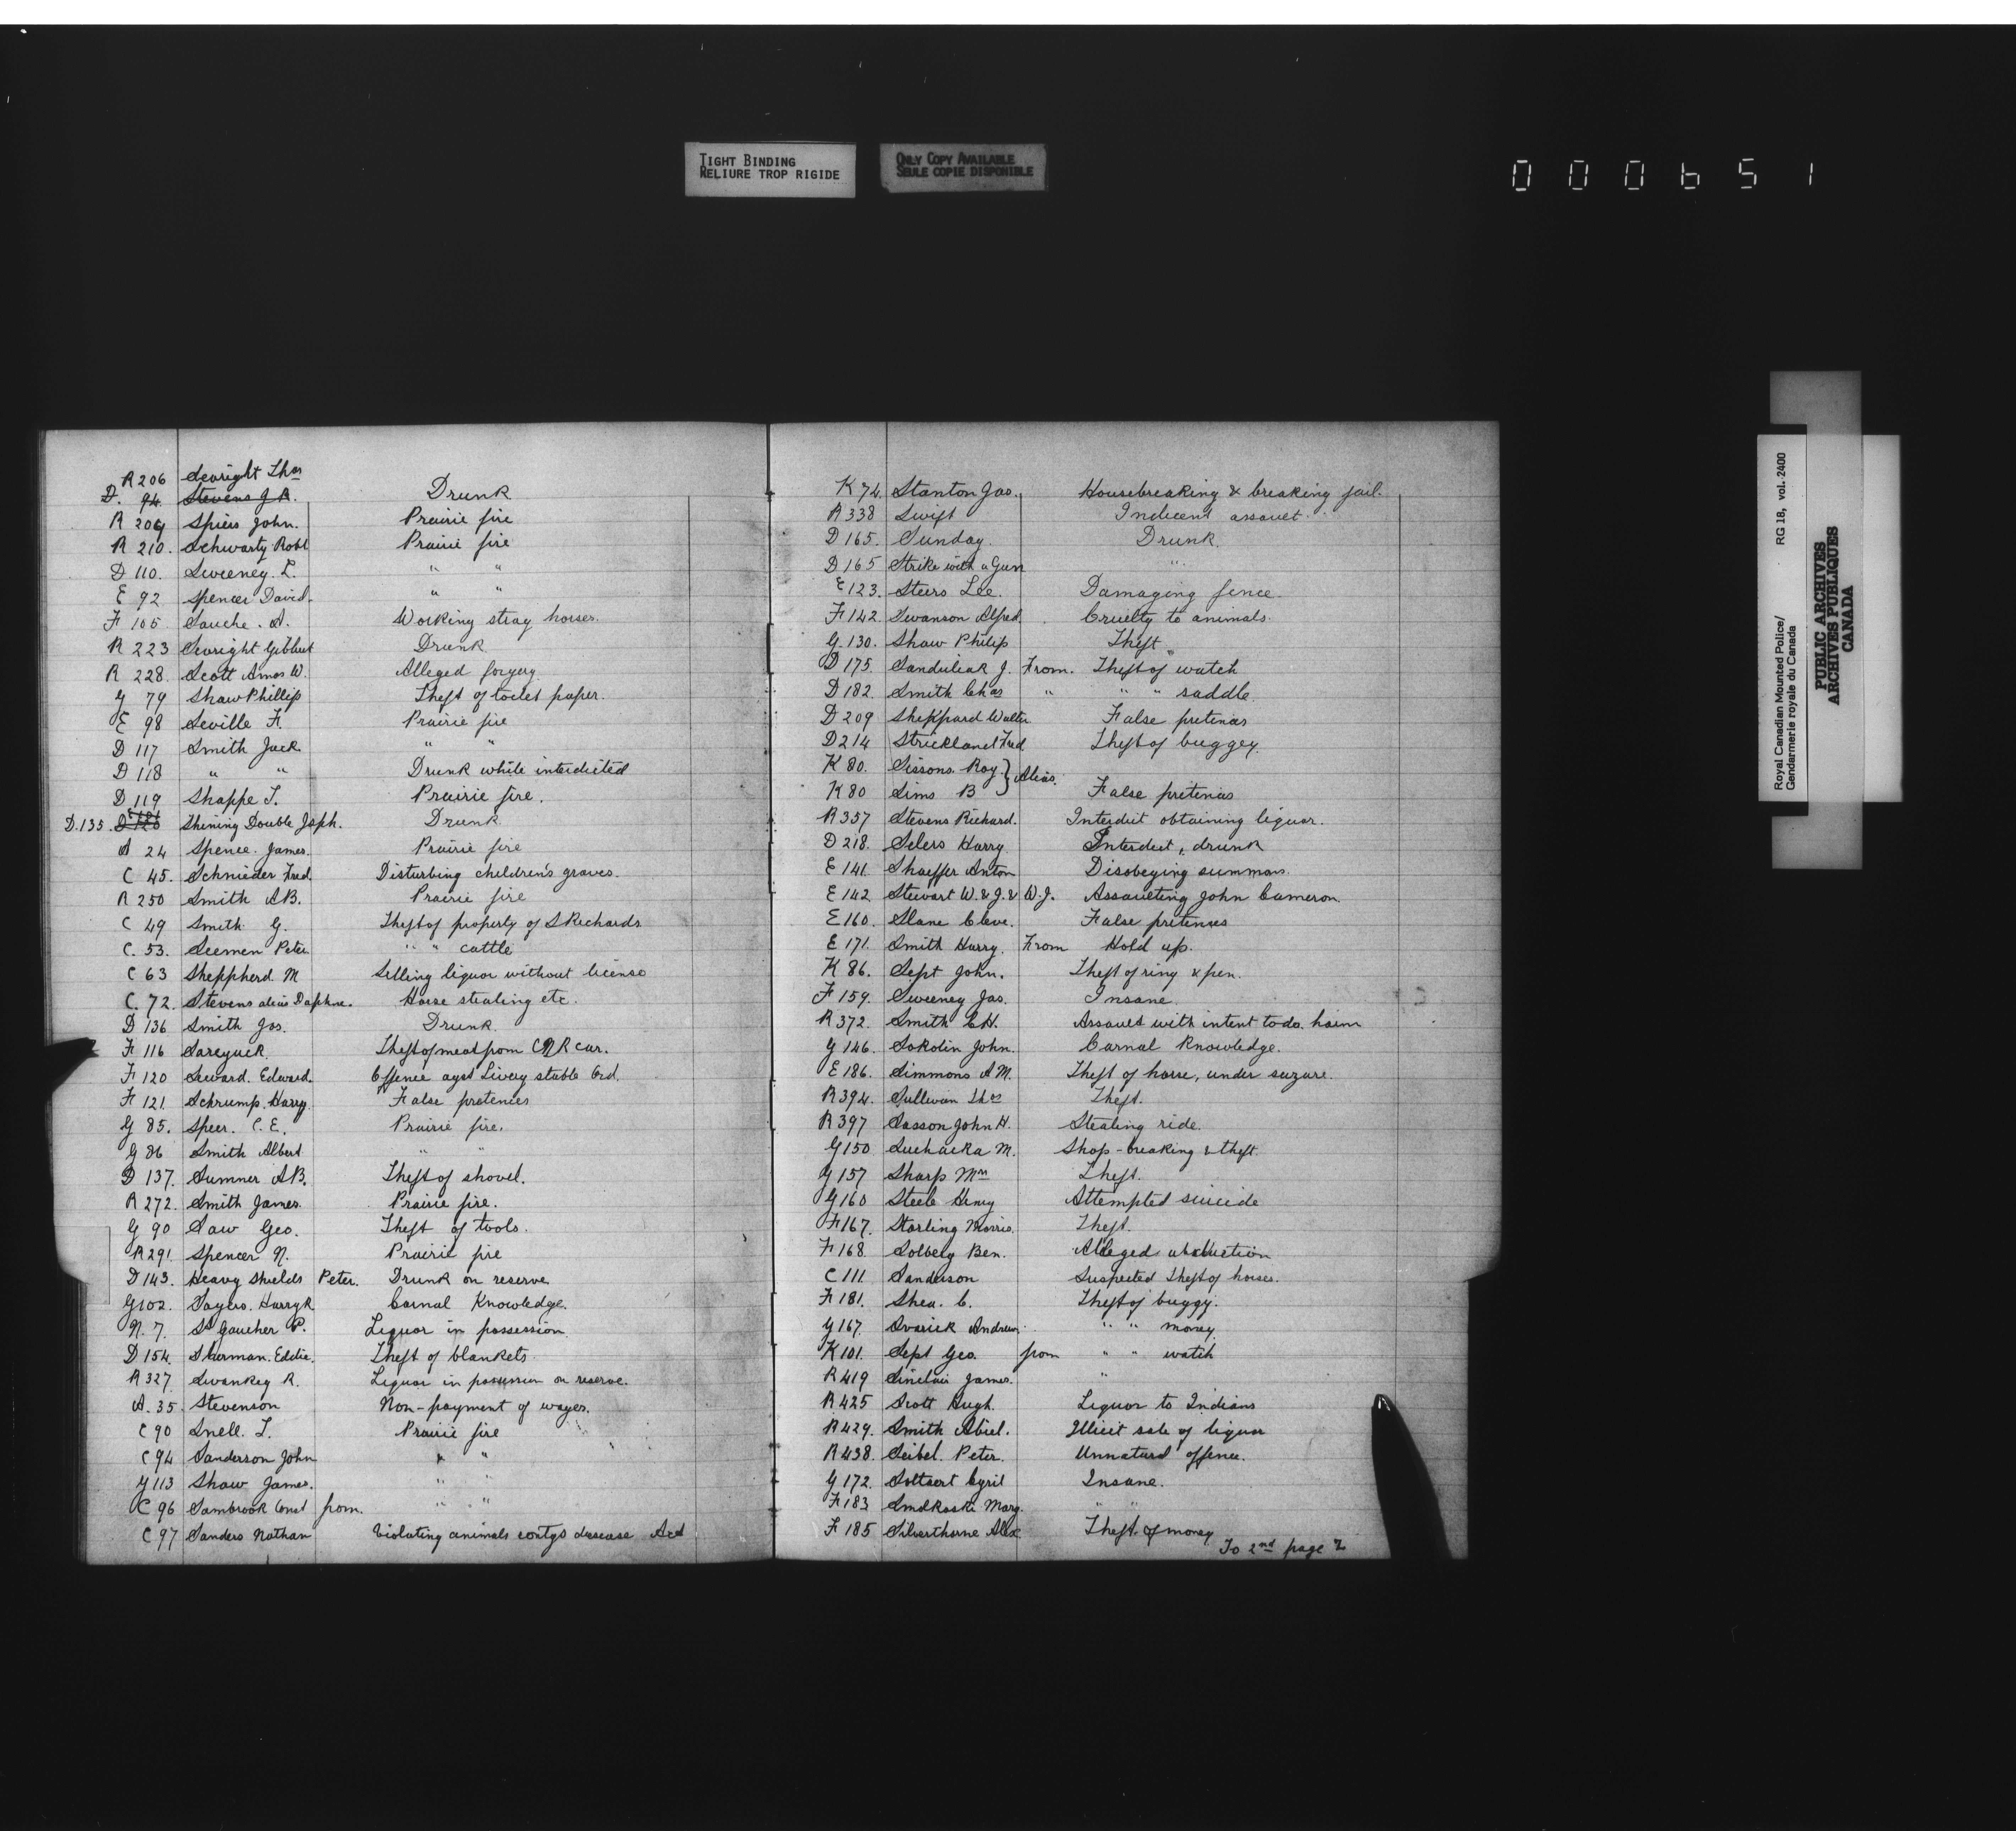 TIGHT BINDING
RELIURE TROP RIGIDE
ONLY COPY AVAILABLE
SEULE COPIE DISPONIBLE
000651
R 206 Seright Thos
D. 94. Stevens J.R. Drunk
R 209 Spiers John. Prairie fire
R 210. Schwartz Robt Prairie fire
D 110. Sweeney. L. " "
E 92 Spencer David. " "
F 105 Sauche. A. Working stray horses.
R 223 Seright Gilbert Drunk
R 228. Scott Amos W. Alleged forgery
G 79 Shaw Phillip Theft of toilet paper.
E 98 Seville F. Prairie fire
D 117 Smith Jack " "
D 118 " " Drunk while interdicted
D 119 Shappe T. Prairie fire.
D.135. Shining Double Jsph. Drunk
A 24 Spence. James. Prairie fire
C 45. Schnieder Fred. Disturbing children's graves.
R 250 Smith A.B. Prairie fire
C 49 Smith G. Theft of property of S Richards
C. 53. Seemen Peter " " cattle
C 63 Sheppherd M Selling liquor without license
C. 72. Stevens alias Daphne. Horse stealing etc.
D 136 Smith Jos. Drunk.
F 116 Sareyuck. Theft of meat from CNR car.
F 120 Seward. Edward. Offence agst Livery stable Ord.
F 121 Schrump. Harry. False pretences
G 85. Speer. C.E. Prairie fire.
G 86 Smith Albert " "
D 137. Sumner A.B. Theft of shovel.
R 272. Smith James. Prairie fire.
G 90 Saw Geo. Theft of tools.
R 291. Spencer N. Prairie fire
D 143. Heavy Shields Peter. Drunk on reserve
G 102. Sayers. Harry R Carnal Knowledge.
N. 7. St Goucher P. Liquor in possession.
D 154. Sherman. Eddie. Theft of blankets.
R 327. Swankey R. Liquor in possession on reserve.
A. 35. Stevenson Non-payment of wages.
C 90 Snell. T. Prairie fire
C 94 Sanderson John " "
G 113 Shaw James. " "
C 96 Sambrook Const from. " "
C 97 Sanders Nathan Violating animals contgs disease Act
K 74. Stanton Jas. Housebreaking & breaking jail.
R 338 Swift Indecent assault.
D 165. Sunday. Drunk.
D 165 Strike with a Gun "
E 123. Steers Lee. Damaging fence.
F 142. Swanson Alfred. Cruelty to animals.
G. 130. Shaw Philip Theft
D 175. Sanduliak J. From. Theft of watch
D 182. Smith Chas " " " saddle
D 209 Shekpard Walter False pretences
D 214 Strickland Fred Theft of buggey.
K 80. Sissons. Roy } Alias.
K 80 Sims B False pretences
R 357 Stevens Richard. Interdict obtaining liquor.
D 218. Selers Harry Interdict, drunk
E 141. Shaeffer Anton Disobeying summons.
E 142. Stewart W. & J. & W.J. Assaulting John Cameron.
E 160. Slane Cleve. False pretences
E 171. Smith Harry. From Hold up.
K 86. Sept John. Theft of ring & pen.
F 159. Sweeney Jas. Insane.
R 372. Smith C.H. Assault with intent to do harm
G 146. Sokolin John. Carnal Knowledge.
E 186. Simmons A M. Theft of horse, under seizure.
R 394. Sullivan Thos Theft.
R 397 Sasson John H. Stealing ride.
G 150 Suchacka M. Shop-breaking & theft.
G 157 Sharp Wm Theft.
G 160 Steele Henry Attempted suicide
F 167. Storling Morris. Theft.
F 168. Solberg Ben. Alleged abduction
C 111. Sanderson Suspected theft of horses.
F 181. Shea. C. Theft of buggy.
G 167. Svarick Andrew. " " money.
K 101. Sept Geo. from " " watch
R 419 Sinclair James. "
R 425 Scott Hugh. Liquor to Indians
R 429. Smith Abiel. Illicit sale of liquor
R 438. Seibel. Peter. Unnatural offence.
G 172. Soltaert Cyril Insane.
F 183 Smokaski Mary. " "
F 185 Silverthorne Alex Theft of money
To 2nd page Z
Royal Canadian Mounted Police/ RG 18, vol. 2400
Gendarmerie royale du Canada
PUBLIC ARCHIVES
ARCHIVES PUBLIQUES
CANADA